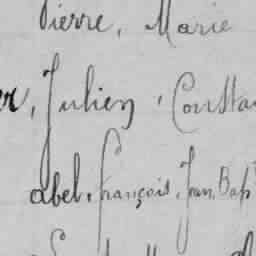 Pierre, Marie
er, Julien, Constan
abel, françois, Jean, Bap